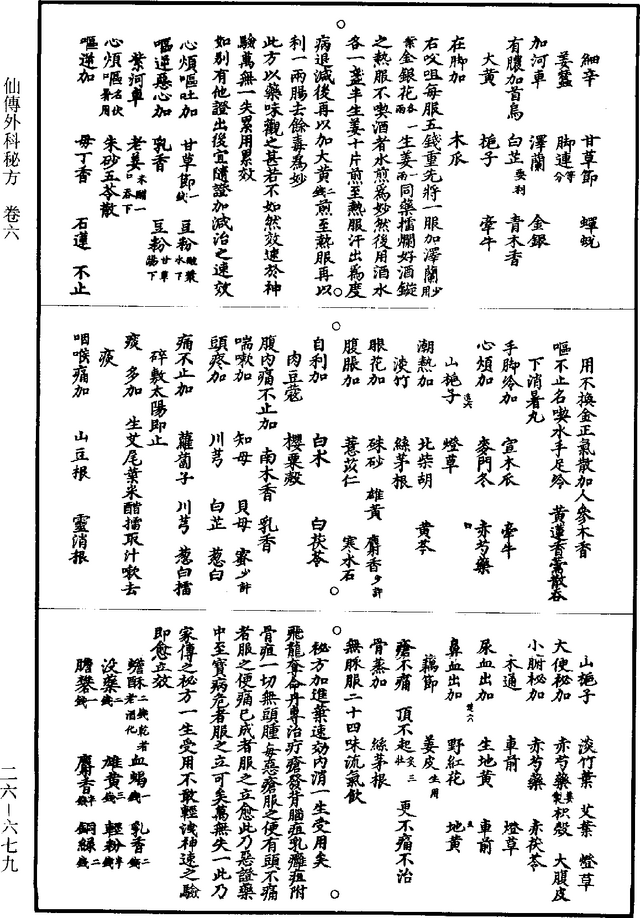 仙傳外科秘方 卷六
細辛 甘草節 蟬蛻
姜蠶 脚連等分
加河車 澤蘭 金銀
有膿加首烏 白芷要利 青木香
大黃 梔子 牽牛
在脚加 木瓜
右㕮咀每服五錢重先將一服加澤蘭
紫金銀花各一兩 生姜一兩 同藥擂爛好酒鏇
之熱服不喫酒者水煎為妙然後用酒水
各一盞半生姜十片煎至熱服汗出為度
病退減後再以加大黃二錢煎至熱服再以
利一兩腸去餘毒為妙
此方以藥味觀之甚若不如然效速於神
驗萬無一失累用累效
如別有他證出後宜隨證加減治之速效
心煩嘔吐加 甘草節一錢 豆粉 水下
嘔逆惡心加 乳香 豆粉甘草湯下
葉河車 老姜米㵎一口吞下
心煩嘔名伏暑用 朱砂五苓散
嘔逆加 毋丁香 石蓮 不止
用不換金正氣散加人參木香
嘔不止名喫水手足冷 黃蓮香薷散吞
下消暑丸
手脚冷加 宣木瓜 牽牛
心煩加 麥門冬 赤芍藥
山梔子 燈草
潮熱加 北柴胡 黃芩
淡竹 絲茅根
眼花加 硃砂 雄黃 麝香少許
腹脹加 薏苡仁 寒水石
自利加 白朮 白茯苓
肉豆蔻 櫻粟殼
腹內痛不止加 南木香 乳香
喘嗽加 知母 貝母 蜜少許
頭疼加 川芎 白芷 葱白
痛不止加 蘿蔔子 川芎 葱白擂
碎敷太陽即止
痰多加 生艾尾葉米醋擂取汁嗽去
痰
咽喉痛加 山豆根 靈消根
山梔子 淡竹葉 艾葉 燈草
大便秘加 赤芍藥 枳殼 大腹皮
小腑秘加 赤芍藥 赤茯苓
木通 車前 燈草
尿血出加 生地黃 車前
鼻血出加 野紅花 地黃
藕節 姜皮生用
瘡不痛 頂不起灸三壯 更不痛不治
骨蒸加 絲茅根
無脉服二十四味流氣飲
秘方加進葉速効內消一生受用矣
飛龍奪命丹專治疔瘡發背腦疽乳癰疽附
骨疽一切無頭腫每惡瘡服之便有頭不痛
者服之便痛已成者服之立愈此乃惡證藥
中至寶病危者服之立可矣萬無失一此乃
家傳之秘方一生受用不敢輕洩神速之驗
即愈立效
蟾酥二錢乾者老酒化 血蝎一錢 乳香二錢
沒藥二錢 雄黃三錢 輕粉半錢
膽礬一錢 麝香半錢 銅綠二錢
二六—六七九